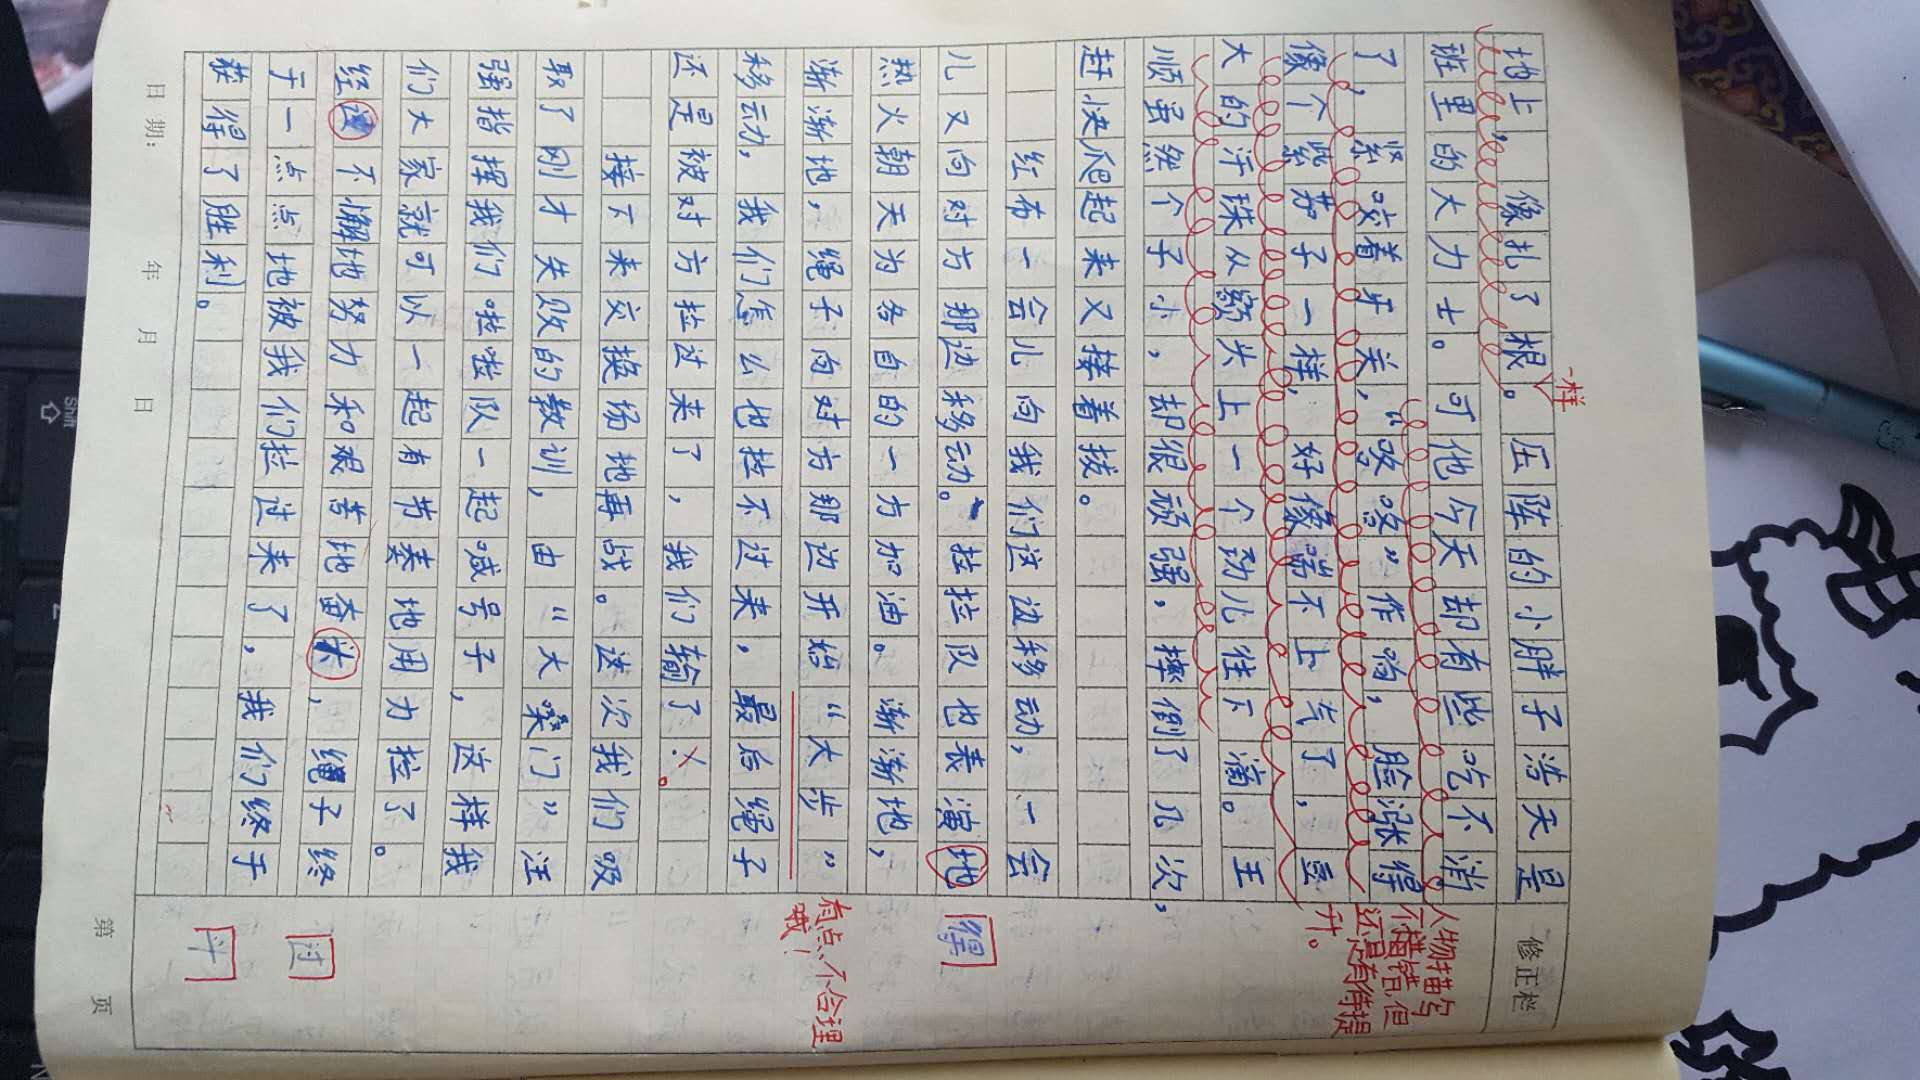 地上，像扎了根。压阵的小胖子浩天是
一样
班里的大力士。可他今天却有些吃不消
了，紧咬着牙关，“咯咯”作响，脸涨得
像个紫茄子一样，好像喘不上气了，豆
大的汗珠从额头上一个劲儿往下滴。王
顺虽然个子小，却很顽强，摔倒了几次，
赶快爬起来又接着拔。
红布一会儿向我们这边移动，一会
儿又向对方那边移动。拉拉队也表演地
热火朝天为各自的一方加油。渐渐地，
渐渐地，绳子向对方那边开始“大步”
移动，我们怎么也拉不过来，最后绳子
还是被对方拉过来了，我们输了。
接下来交换场地再战。这次我们吸
取了刚才失败的教训，由“大嗓门”汪
强指挥我们啦啦队一起喊号子，这样我
们大家就可以一起有节奏地用力拉了。
经 不懈地努力和艰苦地奋 ，绳子终
于一点点地被我们拉过来了，我们终于
获得了胜利。
修正栏
人物描写
不错，但
还是有待提
升。
得
有点不合理
哦！
过
斗
日期： 年 月 日
第 页
Shift